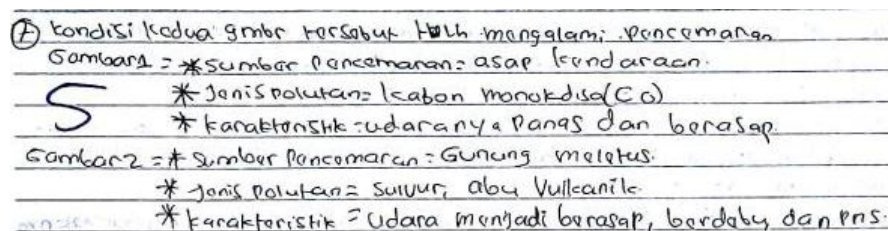 7 kondisi kedua gmbr tersebut tlh mengalami pencemaran
Gambar1 = * sumber pencemaran = asap kendaraan.
5 * Jenis polutan = kabon monokdisa (CO)
* karakteristik = udaranya panas dan berasap.
Gambar2 = * sumber pencemaran = Gunung meletus.
* jenis polutan = suluur, abu Vulkanik.
* karakteristik = udara menjadi berasap, berdabu, dan pns.